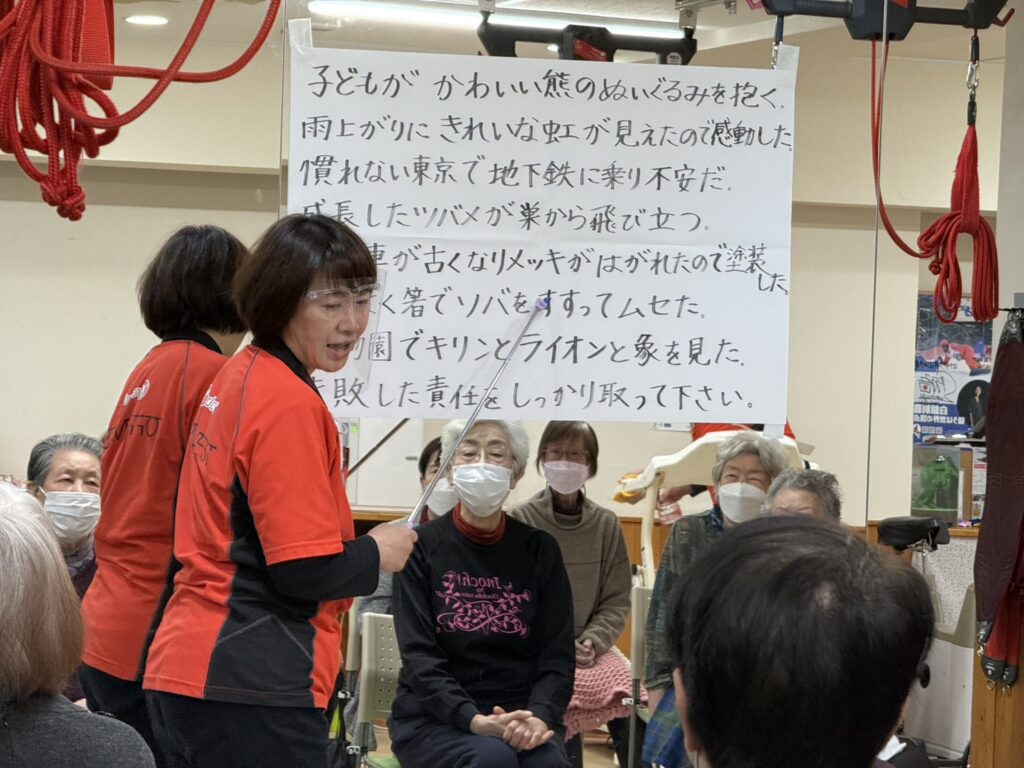 子どもが かわいい熊のぬいぐるみを抱く.
雨上がりに きれいな虹が見えたので感動した.
慣れない東京で地下鉄に乗り不安だ.
成長したツバメが巣から飛び立つ。
車が古くなりメッキがはがれたので塗装した。
く箸でソバをすすってムセた.
園でキリンとライオンと象を見た.
失敗した責任をしっかり取って下さい。
Inochi